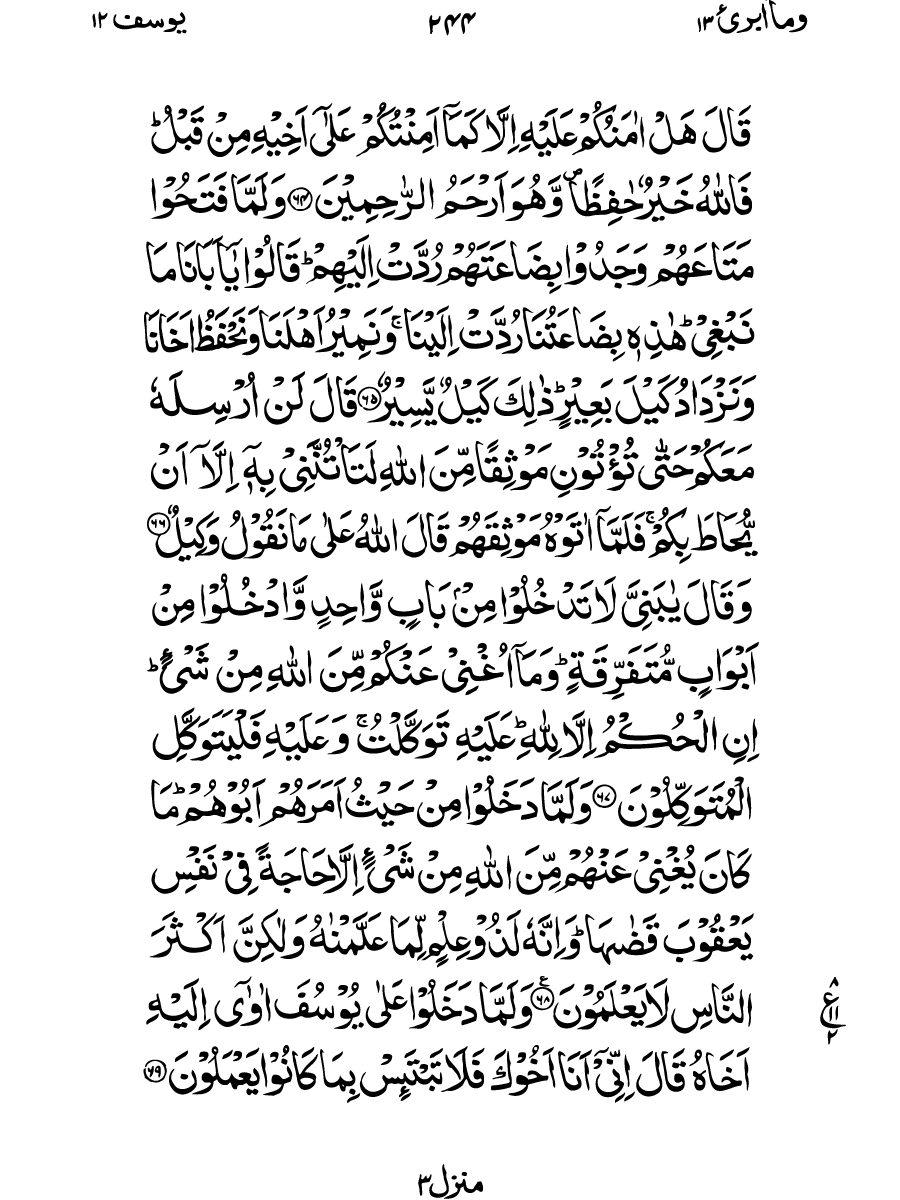 وما ابرئ ١٣ ٢٤٤ يوسف ١٢
قَالَ هَلْ اٰمَنُكُمْ عَلَيْهِ اِلَّا كَمَاۤ اَمِنْتُكُمْ عَلٰۤى اَخِيْهِ مِنْ قَبْلُ ؕ
فَاللّٰهُ خَيْرٌ حٰفِظًا ۪ وَّهُوَ اَرْحَمُ الرّٰحِمِيْنَ ﴿۶۴﴾ وَلَمَّا فَتَحُوْا
مَتَاعَهُمْ وَجَدُوْا بِضَاعَتَهُمْ رُدَّتْ اِلَيْهِمْ ؕ قَالُوْا يٰۤاَبَانَا مَا
نَبْغِيْ ؕ هٰذِهٖ بِضَاعَتُنَا رُدَّتْ اِلَيْنَا ۚ وَنَمِيْرُ اَهْلَنَا وَنَحْفَظُ اَخَانَا
وَنَزْدَادُ كَيْلَ بَعِيْرٍ ؕ ذٰلِكَ كَيْلٌ يَّسِيْرٌ ﴿۶۵﴾ قَالَ لَنْ اُرْسِلَهٗ
مَعَكُمْ حَتّٰى تُؤْتُوْنِ مَوْثِقًا مِّنَ اللّٰهِ لَتَاْتُنَّنِيْ بِهٖۤ اِلَّاۤ اَنْ
يُّحَاطَ بِكُمْ ۚ فَلَمَّاۤ اٰتَوْهُ مَوْثِقَهُمْ قَالَ اللّٰهُ عَلٰى مَا نَقُوْلُ وَكِيْلٌ ﴿۶۶﴾
وَقَالَ يٰبَنِيَّ لَا تَدْخُلُوْا مِنْۢ بَابٍ وَّاحِدٍ وَّادْخُلُوْا مِنْ
اَبْوَابٍ مُّتَفَرِّقَةٍ ؕ وَمَاۤ اُغْنِيْ عَنْكُمْ مِّنَ اللّٰهِ مِنْ شَيْءٍ ؕ
اِنِ الْحُكْمُ اِلَّا لِلّٰهِ ؕ عَلَيْهِ تَوَكَّلْتُ ۚ وَعَلَيْهِ فَلْيَتَوَكَّلِ
الْمُتَوَكِّلُوْنَ ﴿۶۷﴾ وَلَمَّا دَخَلُوْا مِنْ حَيْثُ اَمَرَهُمْ اَبُوْهُمْ ؕ مَا
كَانَ يُغْنِيْ عَنْهُمْ مِّنَ اللّٰهِ مِنْ شَيْءٍ اِلَّا حَاجَةً فِيْ نَفْسِ
يَعْقُوْبَ قَضٰىهَا ؕ وَاِنَّهٗ لَذُوْ عِلْمٍ لِّمَا عَلَّمْنٰهُ وَلٰكِنَّ اَكْثَرَ
النَّاسِ لَا يَعْلَمُوْنَ ﴿۶۸﴾ؑ وَلَمَّا دَخَلُوْا عَلٰى يُوْسُفَ اٰوٰۤى اِلَيْهِ
٨ ع ١١ ٢
اَخَاهُ قَالَ اِنِّيْۤ اَنَا اَخُوْكَ فَلَا تَبْتَئِسْ بِمَا كَانُوْا يَعْمَلُوْنَ ﴿۶۹﴾
منزل ٣